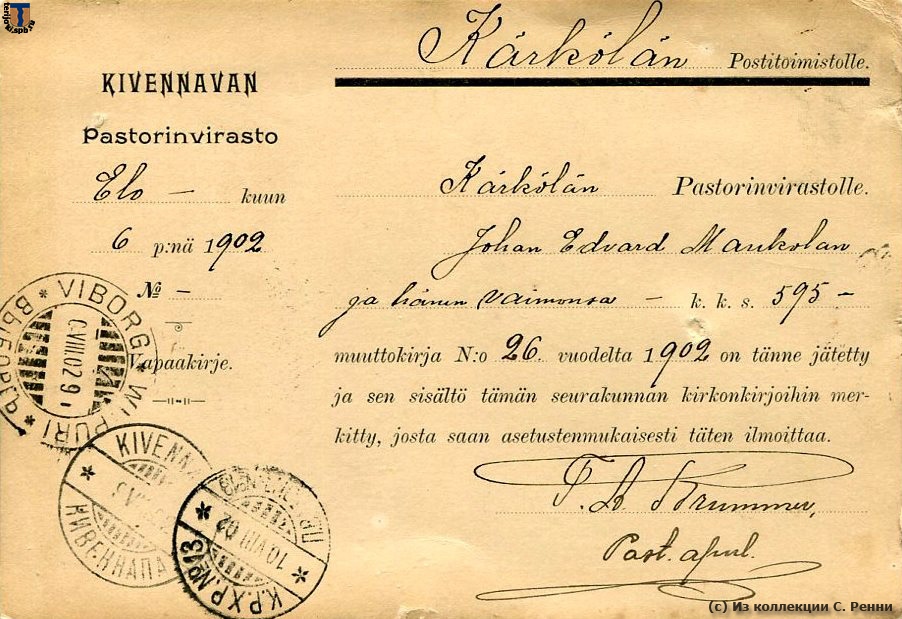 Kärkölän Postitoimistolle.
KIVENNAVAN
Pastorinvirasto
Elo – kuun
6 p:nä 1902
№ –
Vapaakirje.
Kärkölän Pastorinvirastolle.
Johan Edvard Maukolan
ja hänen vaimonsa – k. k. s. 595 –
muuttokirja N:o 26 vuodelta 1902 on tänne jätetty
ja sen sisältö tämän seurakunnan kirkonkirjoihin mer-
kitty, josta saan asetustenmukaisesti täten ilmoittaa.
Krummer,
Past. apul.
VIBORG * WIPURI * ВЫБОРГЪ *
VIII.02 9
KIVENNAPA
* КИВЕННАПА
К.Р.Х.Р. №13 *
10 VIII 02
terijoki.spb.ru
(c) Из коллекции С. Ренни